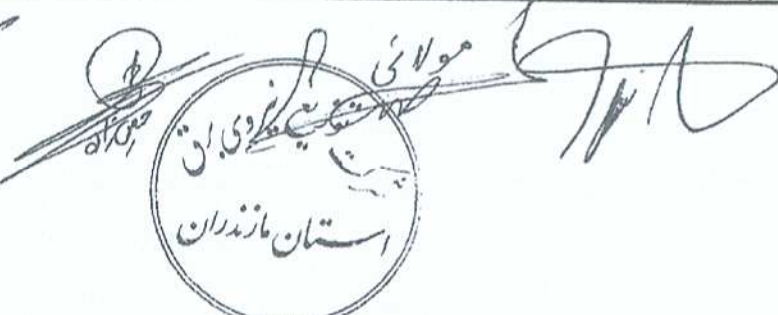 مولائی
شرکت توزیع نیروی برق
استان مازندران